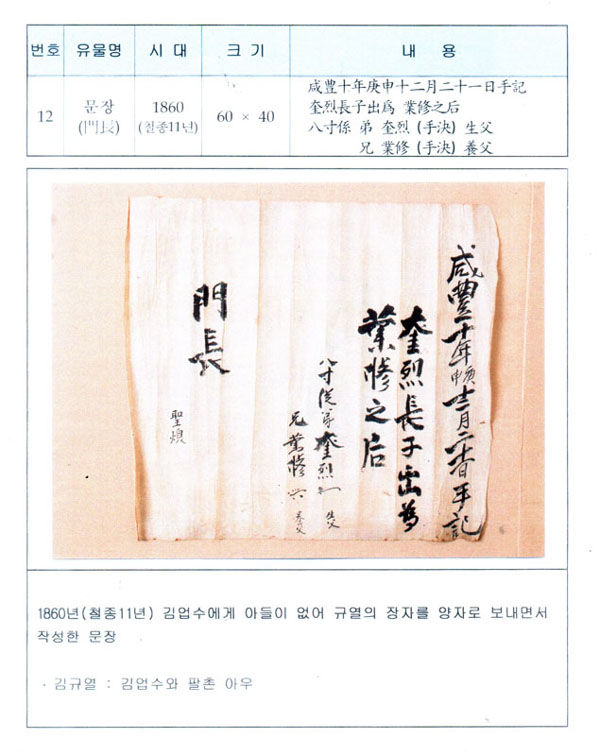 번호 유물명 시 대 크 기 내 용
12 문장 (門長) 1860 (철종11년) 60 × 40
咸豐十年庚申十二月二十一日手記
奎烈長子出爲 業修之后
八寸係 弟 奎烈 (手決) 生父
兄 業修 (手決) 養父
咸豐十年庚申十二月二十一日手記
奎烈長子出爲
業修之后
八寸從弟奎烈 生父
兄業修 養父
門長
聖煥
1860년(철종11년) 김업수에게 아들이 없어 규열의 장자를 양자로 보내면서
작성한 문장
· 김규열 : 김업수와 팔촌 아우